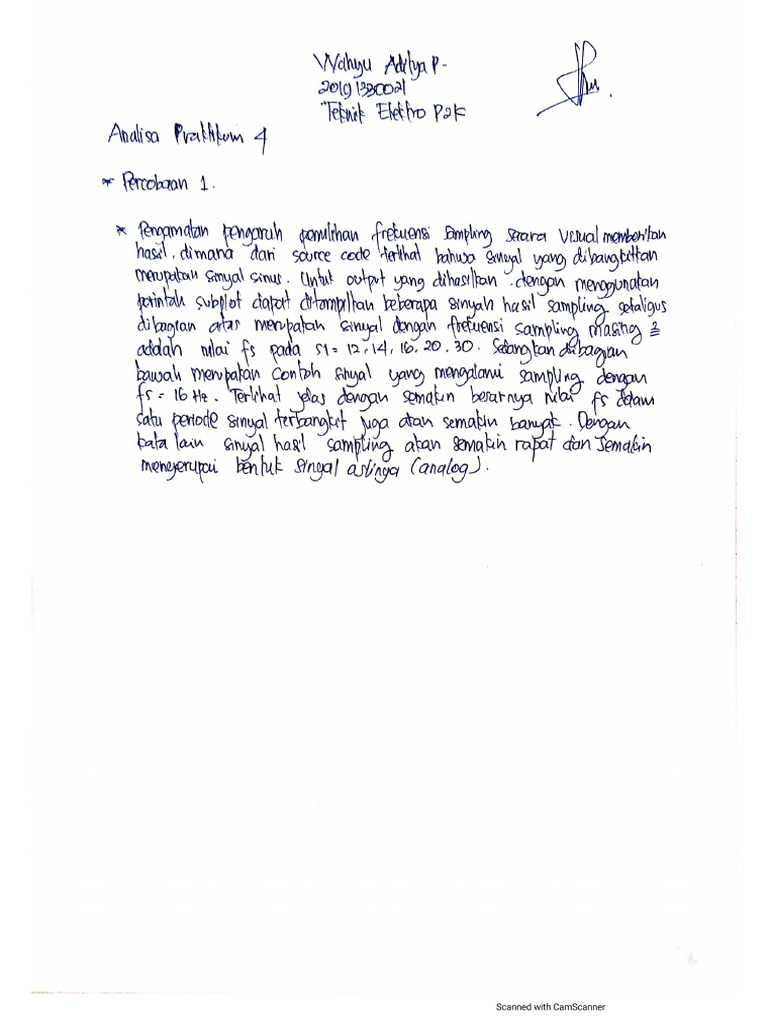 Wahyu Aditya P-
Teknik Elektro P2K
Analisa Praktikum 4
* Percobaan 1.
* Pengamatan pengaruh pemilihan frekuensi sampling secara visual memberikan
hasil, dimana dari source code terlihat bahwa sinyal yang dibangkitkan
merupakan sinyal sinus. Untuk output yang dihasilkan, dengan menggunakan
perintah subplot dapat ditampilkan beberapa sinyal hasil sampling sekaligus
dibagian atas merupakan sinyal dengan frekuensi sampling masing 2
adalah nilai fs pada s1 = 12, 14, 16, 20, 30. Sedangkan dibagian
bawah merupakan contoh sinyal yang mengalami sampling dengan
fs = 16 Hz. Terlihat jelas dengan semakin besarnya nilai fs dalam
satu periode sinyal terbangkit juga akan semakin banyak. Dengan
kata lain sinyal hasil sampling akan semakin rapat dan semakin
menyerupai bentuk sinyal aslinya (analog).
Scanned with CamScanner